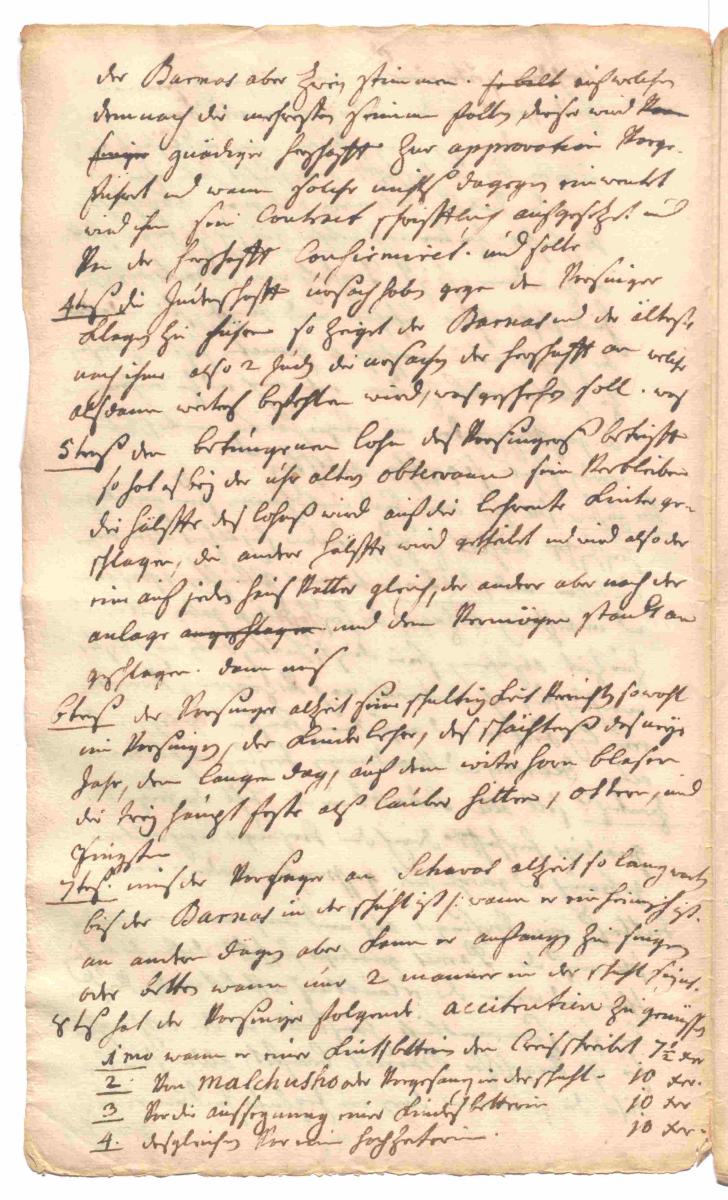 der Barnos aber zweÿ stimmen. auf welchen
dem nach die mehresten stimmen fallen, dieser wird
gnädiger herschafft zur approvation vorge-
führet und wann solche nichts dagegen einwendet
wird ihm sein Contract schrifftlich aufgesetzet und
von der herschafft Confirmiret. und solte
4tens die Judenschafft ursach haben gegen den Vorsinger
klagen zu führen so zeiget der Barnos und der älteste
nach ihme also 2 Juden die ursachen der herschafft an welche
alsdann weiters befehlen wird, was geschehen soll. was
5tens den betungenen lohn des Vorsingers betrifft
so hat es beÿ der uhr alten obserwanz sein Verbleiben
die hälffte des lohns wird auf die lehrente Kinter ge-
schlagen, die andere hälffte wird getheilet und wird also der
eine auf jeden haus Vatter gleich, der andere aber nach der
anlage angeschlagen und dem Vermögen standt an
geschlagen. dann mus
6tens der Vorsinger alzeit seine schultigkeit Verrichten sowohl
im Vorsingen, der Kinderlehre, des schächtens des neÿe
Jahr, dem langen dag, auf dem witer horn blasen
die dreÿ haupt feste als lauber hitten, ostern, und
Pfingsten
7tens. mus der Vorsinger am Schawas alzeit so lang warten
bis der Barnos in der schuhl ist /: wann er einheimisch ist.
an andern dägen aber kann er anfangen zu singen
oder betten wann nur 2 männer in der schuhl seÿnd.
8tens hat der Vorsinger folgende accitentien zu geniessen
1mo wann er einer Kintbetterin den Creis schreibet 7½ xer
2. Von malchusho oder Vorgesang in der schuhl - 10 xer.
3 Vor die aussegnung einer Kindes betterin 10 xer
4. desgleichen Vor eine hochzeiterin. 10 xer.